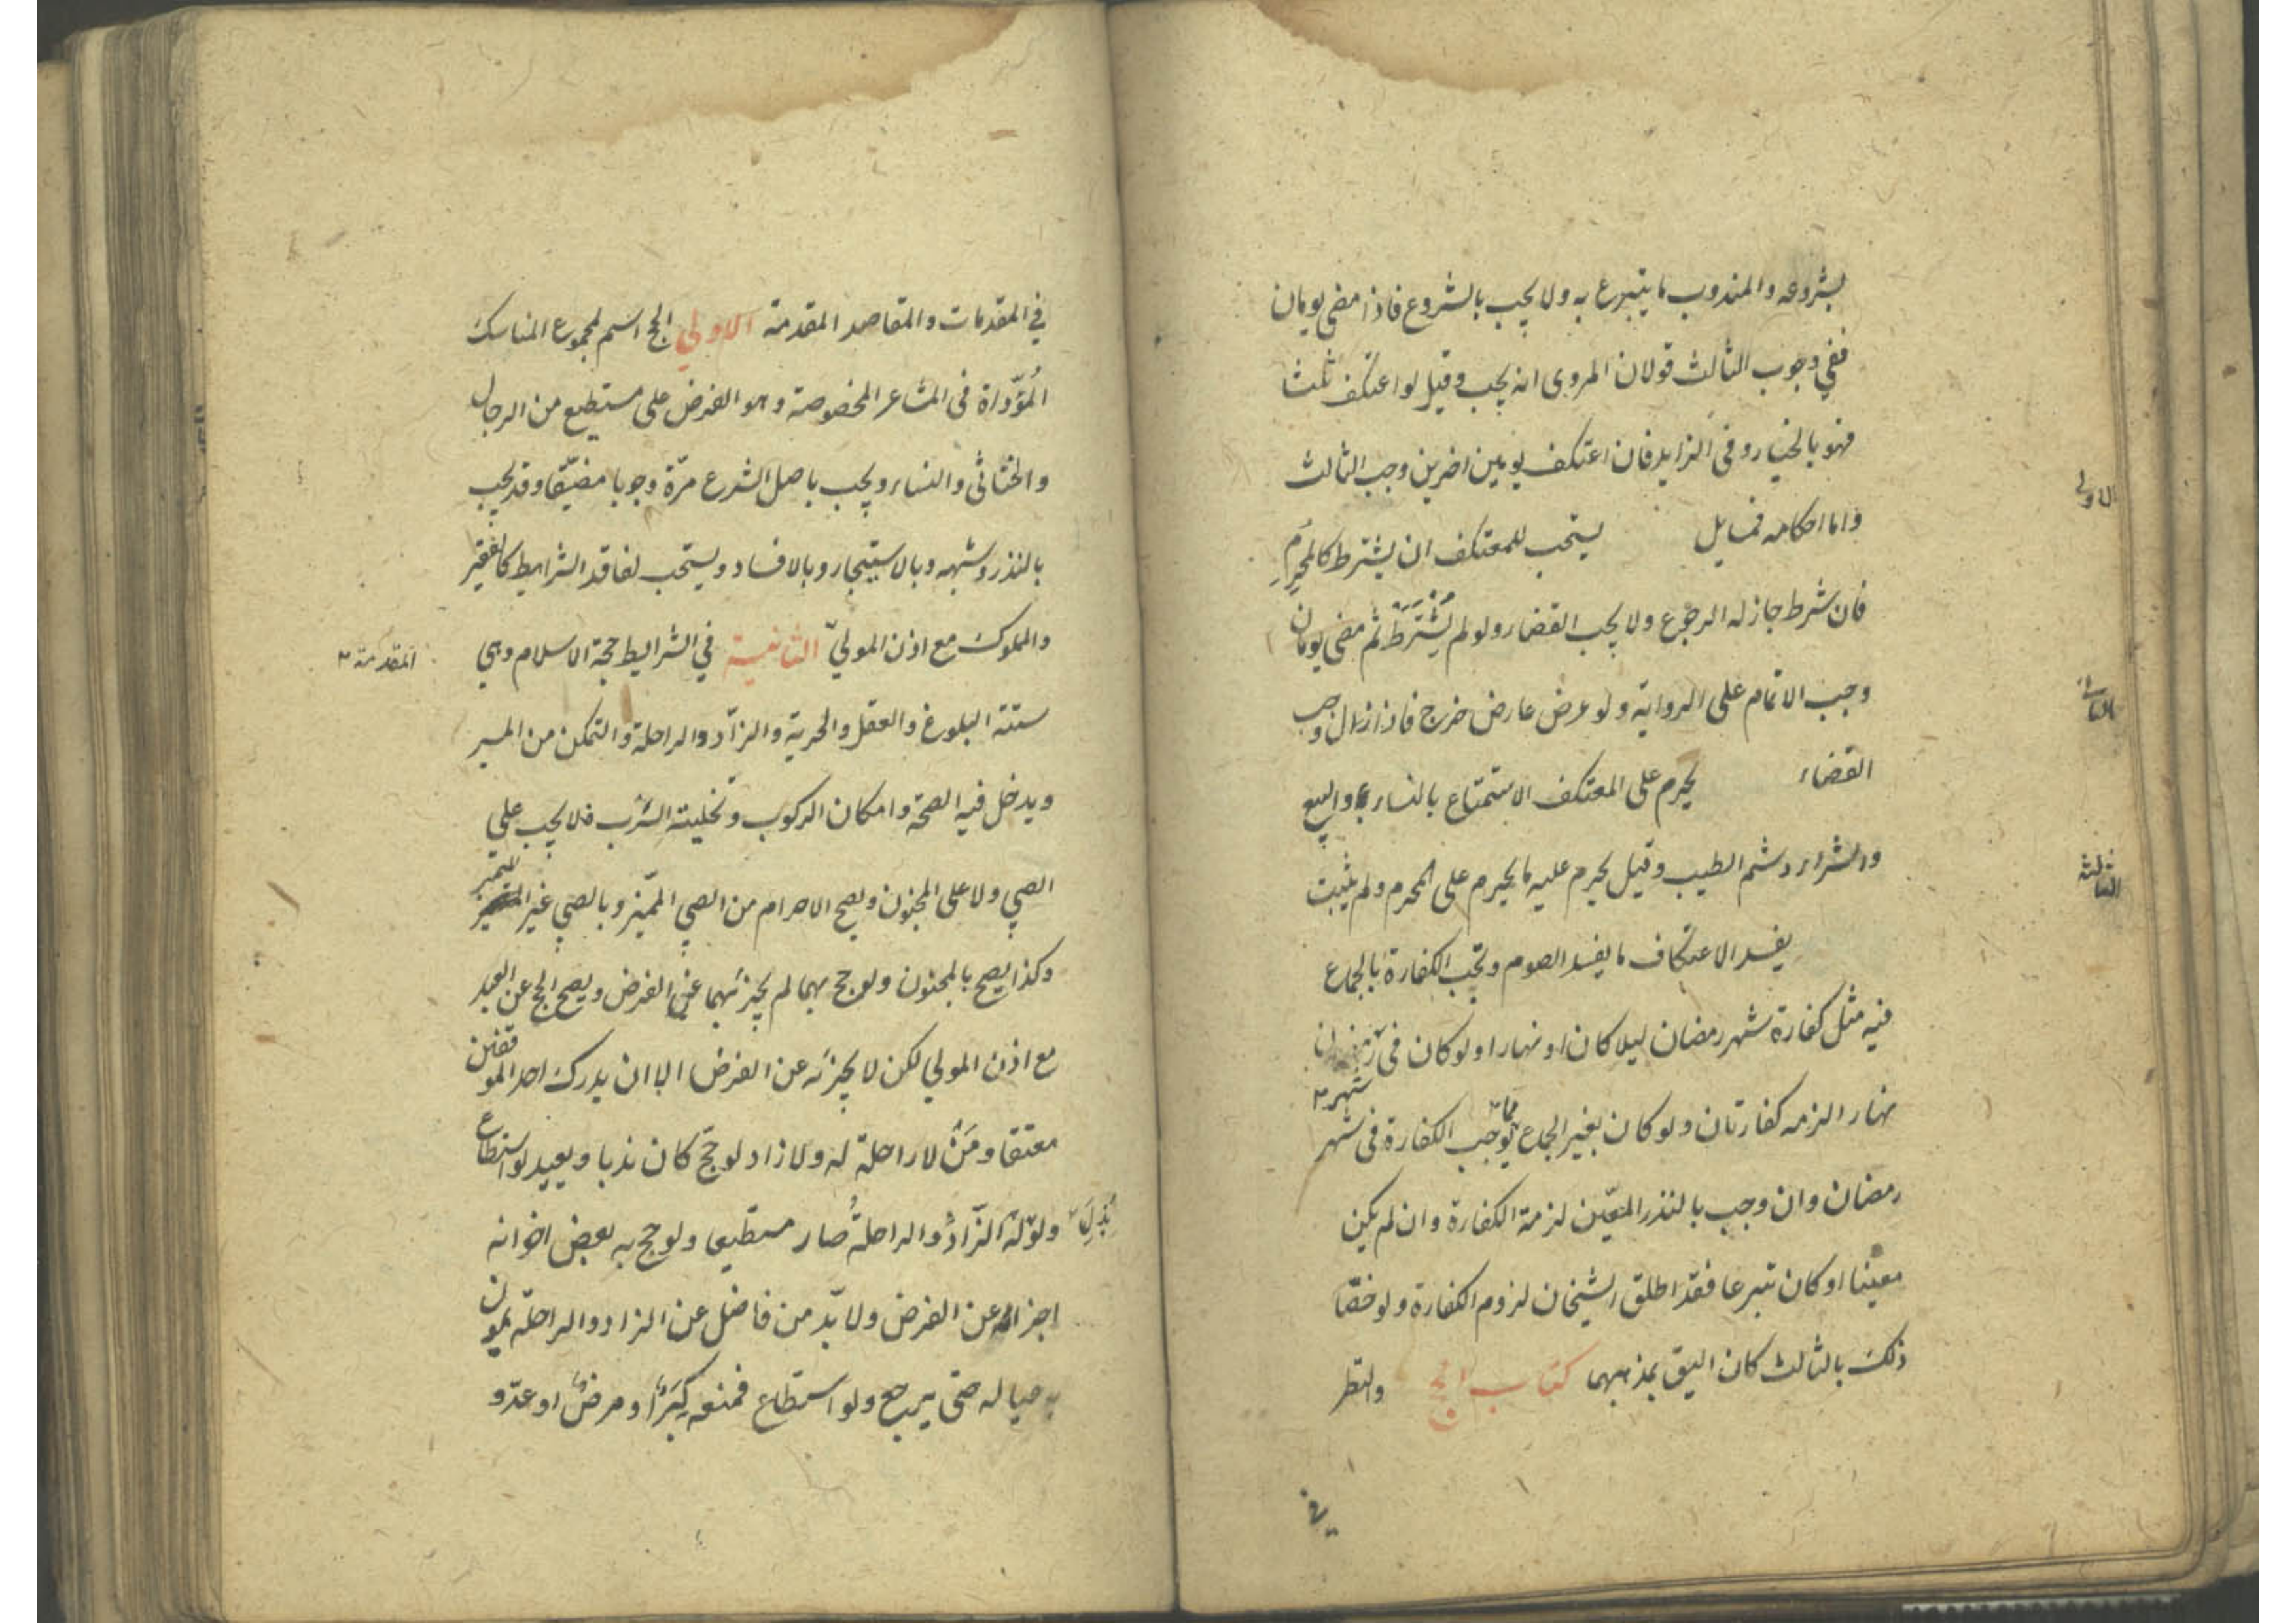 بشروعه والمندوب ما يتبرع به ولا يجب بالشروع فاذا مضى يومان
ففي وجوب الثالث قولان المروى انه يجب وقيل لو اعتكف ثلثا
فهو بالخيار وفى الزايد فان اعتكف يومين اخرين وجب الثالث
واما احكامه فمسايل يستحب للمعتكف ان يشترط كالمُحرِم
الاولى
فان شرط جاز له الرجوع ولا يجب القضاء ولو لم يَشتَرط ثم مضى يومان
وجب الاتمام على الرواية ولو عرض عارض خرج فاذا زال وجب
الثانية
القضاء يحرم على المعتكف الاستمتاع بالنساء والبيع
والشراء وشم الطيب وقيل يحرم عليه ما يحرم على المحرم ولم يثبت
الثالثة
يفسد الاعتكاف ما يفسد الصوم وتجب الكفارة بالجماع
فيه مثل كفارة شهر رمضان ليلا كان او نهارا ولو كان فى رمضان
شهر
نهار الزمه كفارتان ولو كان بغير الجماع مما يوجب الكفارة فى شهر
رمضان وان وجب بالنذر المعيّن لزمة الكفارة وان لم يكن
معينا او كان تبرعا فقد اطلق الشيخان لزوم الكفارة ولو خصّا
ذلك بالثالث كان اليق بمذهبهما كتاب الحج والنظر
في
في المقدمات والمقاصد المقدمة الاولي الحج اسم لمجموع المناسك
المُؤدّاة فى المشاعر المخصوصة وهو الفرض على مستطيع من الرجال
والخناثى والنساء ويجب باصل الشرع مرّة وجوبا مضيّقا وقد يجب
بالنذر وشبهه وبالاستيجار وبالافساد ويستحب لفاقد الشرايط كالفقير
والمملوك مع اذن المولىّ الثانية في الشرايط حجة الاسلام وهي
المقدمة
ستة البلوغ والعقل والحرية والزّاد والراحلة والتمكن من المسير
ويدخل فيه الصحة وامكان الركوب وتخلية السرب فلا يجب على
الصبي ولا على المجنون ويصح الاحرام من الصبي المميّز وبالصبي غير المميز
وكذا يصح بالمجنون ولو حج بهما لم يجزئهما عن الفرض ويصح الحج عن العبد
مع اذن المولي لكن لا يجزئه عن الفرض الا ان يدرك احد الموقفين
معتقا ومَنْ لا راحلة له ولا زاد لو حجّ كان ندبا ويعيد لو استطاع
بُذِلَ
ولو له الزّادُ والراحلةُ صار مستطيعا ولو حج به بعض اخوانه
اجزاه عن الفرض ولا بدّ من فاضل عن الزاد والراحلة يمون
به عياله حتى يرجع ولو استطاع فمنعه كِبَرٌ او مرضٌ او عدّو